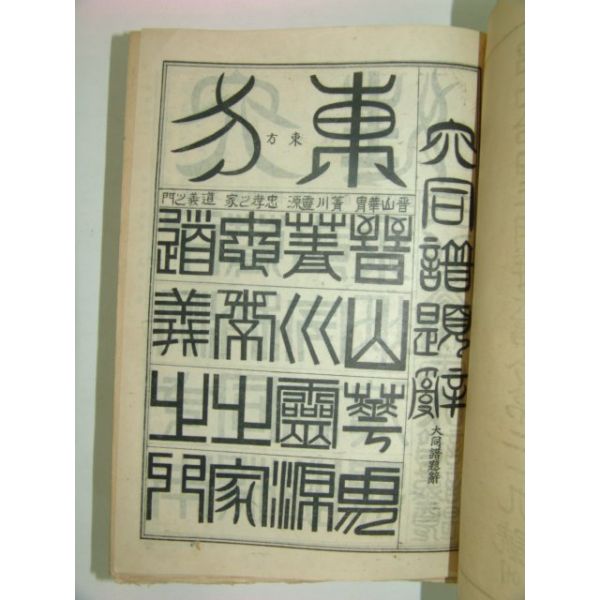 大同譜題辭
大同譜題辭
東方
東方
晋山華胄 菁川靈源 忠孝之家 道義之門
晋山華胄
菁川靈源
忠孝之家
道義之門